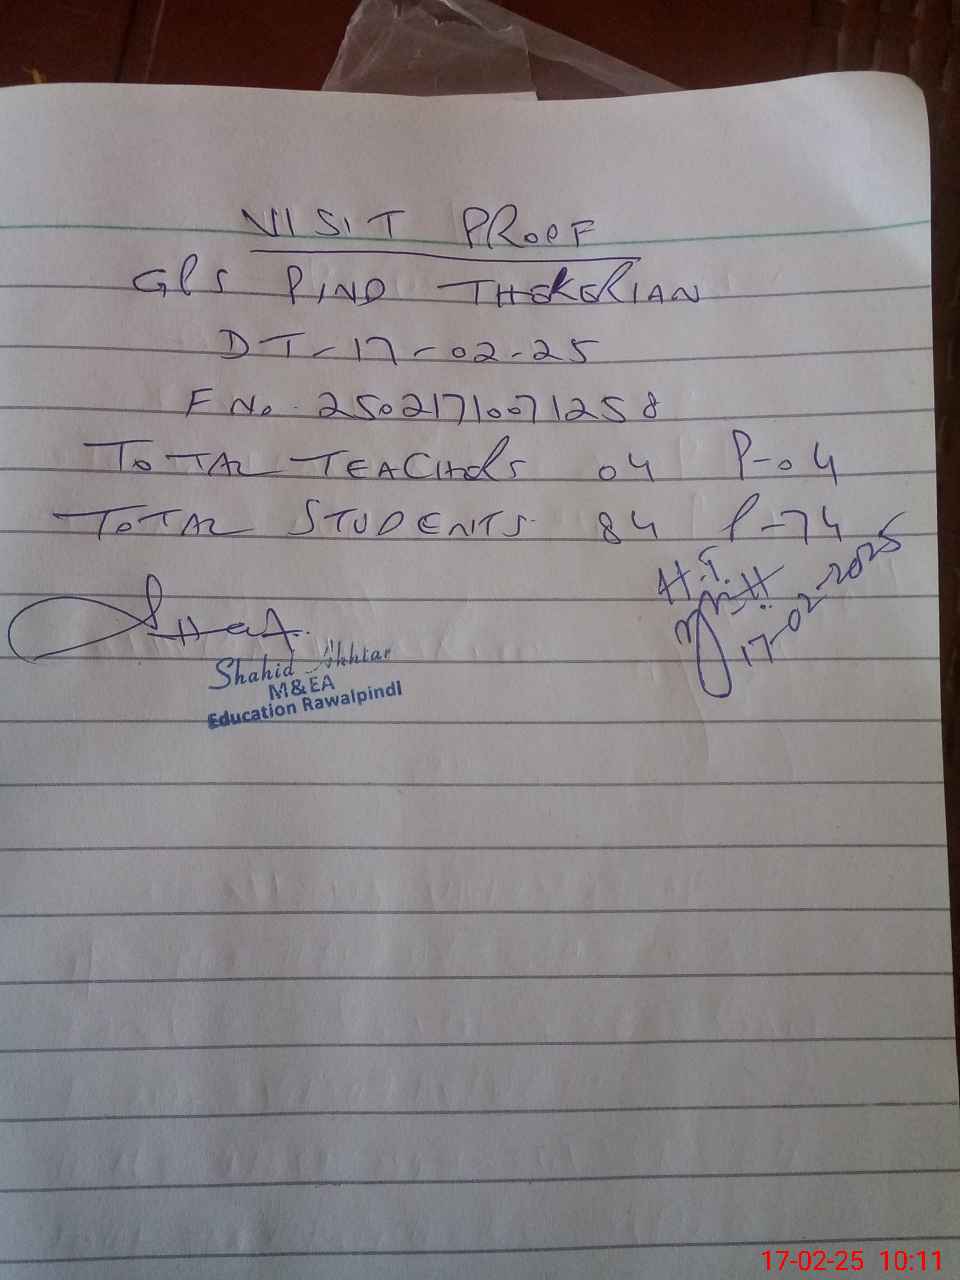 VISIT PROOF
GPS PIND THEKERIAN
DT-17-02-25
F No. 25021710071258
TOTAL TEACHERS 04 P-04
TOTAL STUDENTS 84 P-74
H.T.
17-02-2025
Shahid Akhtar
M&EA
Education Rawalpindi
17-02-25 10:11